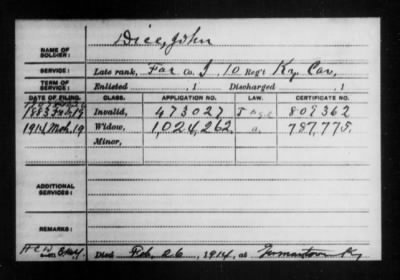 Dice, John
NAME OF SOLDIER:
SERVICE: Late rank, Far Co. I, 10 Reg't Ky. Cav.
Enlisted , 1 Discharged , 1
DATE OF FILING. CLASS. APPLICATION NO. LAW. CERTIFICATE NO.
1883 Invalid, 473027 809362
1914 Mch. 19 Widow, 1,024,262. a. 787,775.
Minor,
ADDITIONAL SERVICES:
REMARKS:
Died Feb. 26, 1914, at Germantown Ky